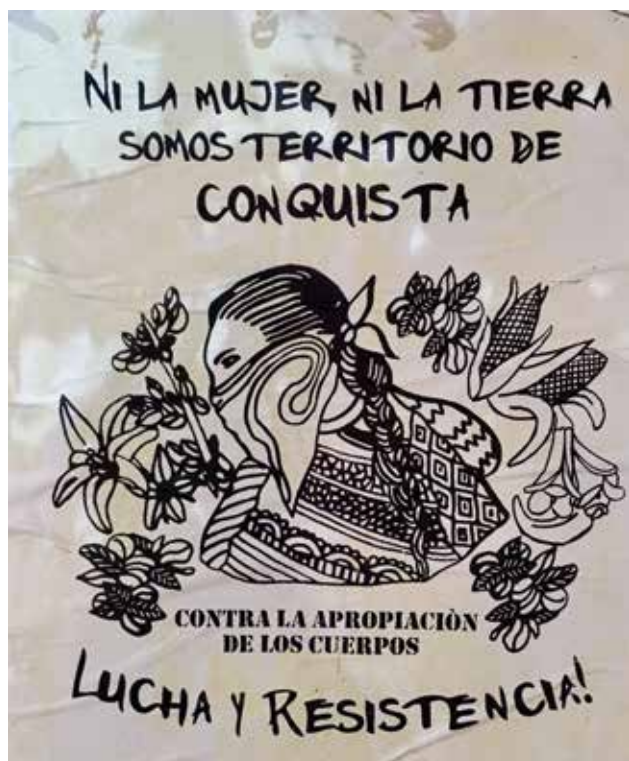 NI LA MUJER, NI LA TIERRA
SOMOS TERRITORIO DE
CONQUISTA
CONTRA LA APROPIACIÒN
DE LOS CUERPOS
LUCHA Y RESISTENCIA!